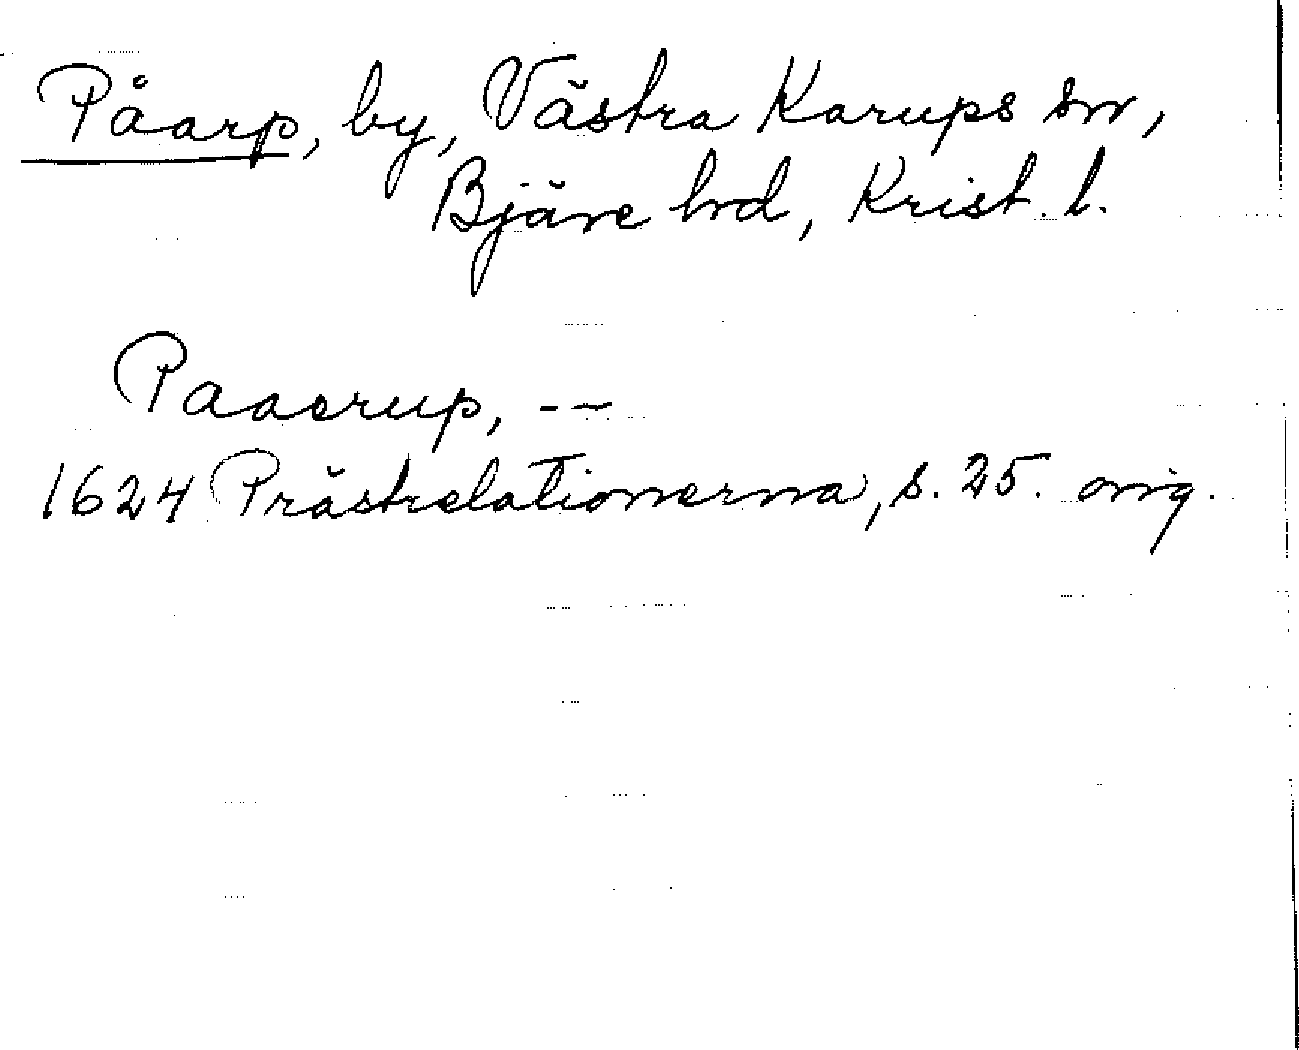 Påarp, by, Västra Karups sn,
Bjäre hd, Krist. l.
Paaerup, --
1624 Prästrelationerna, s. 25. orig.